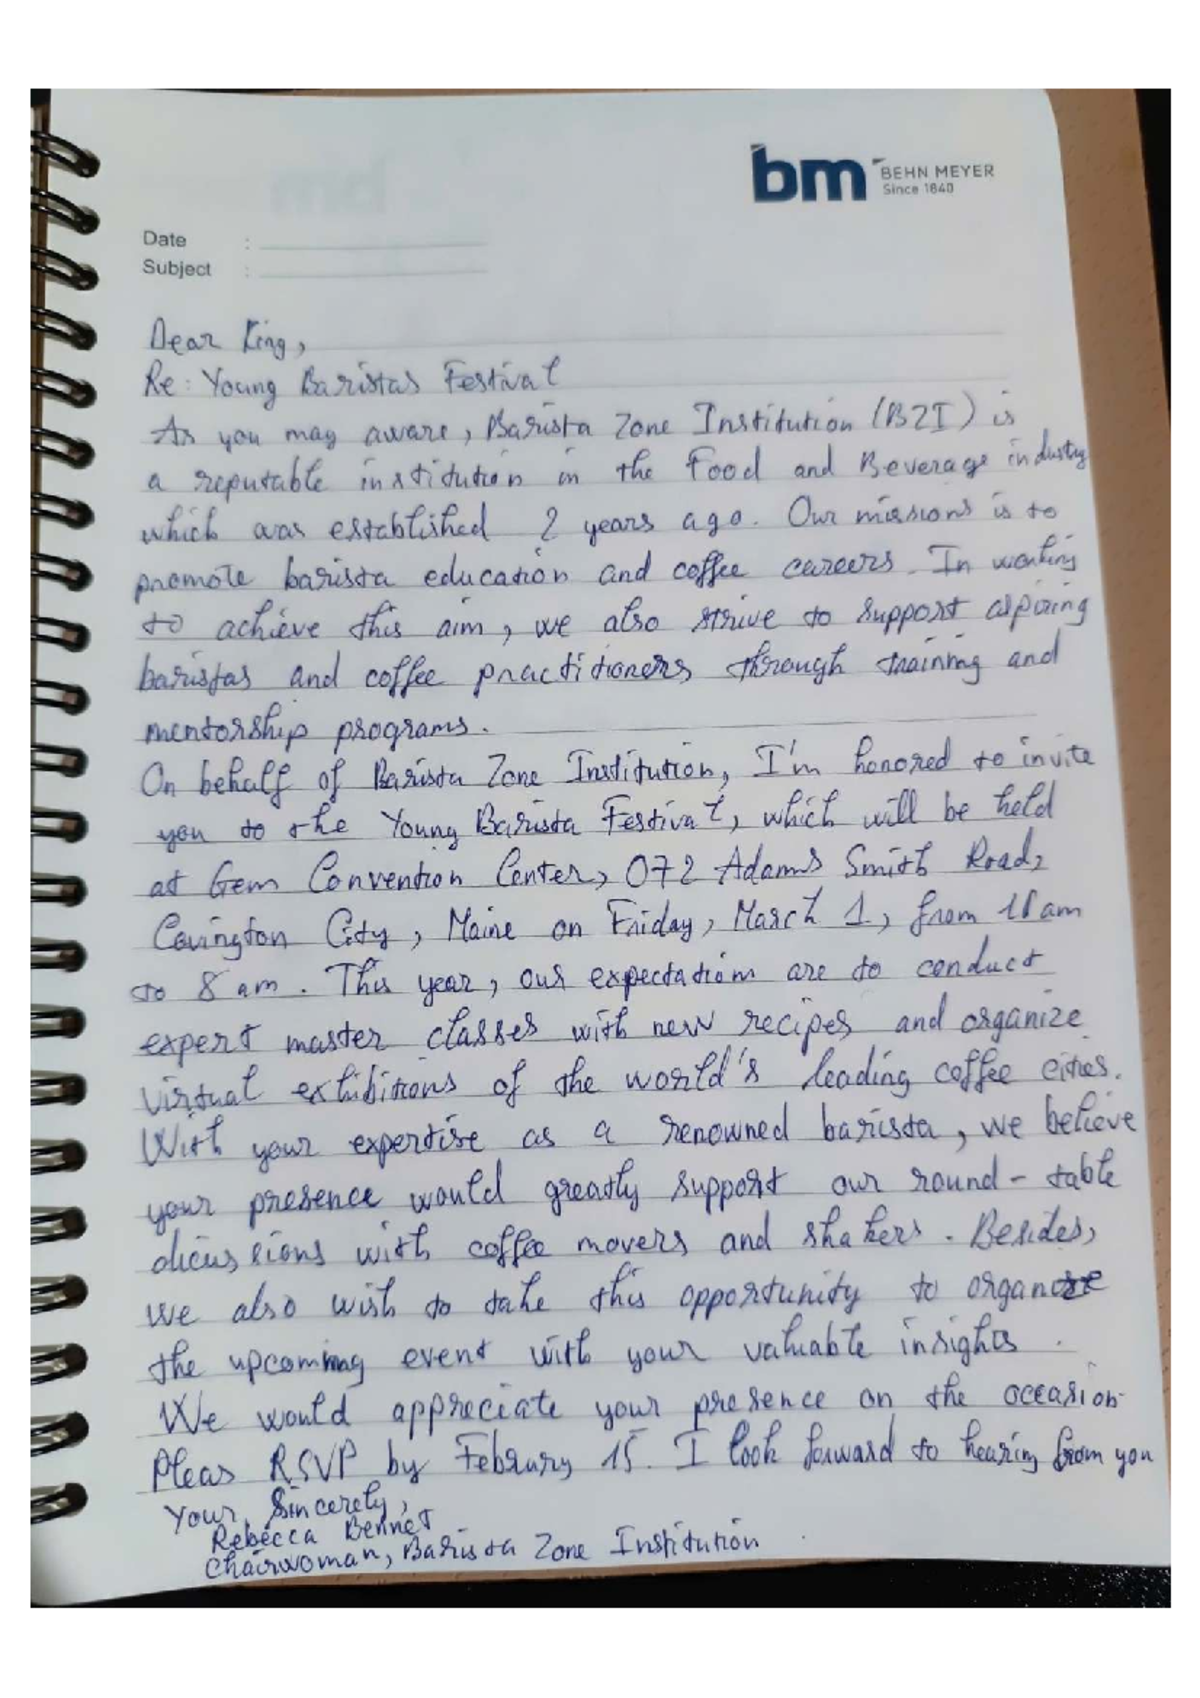 bm BEHN MEYER
Since 1840
Date :
Subject :
Dear King,
Re: Young Baristas Festival
As you may aware, Barista Zone Institution (BZI) is
a reputable institution in the Food and Beverage industry
which was established 2 years ago. Our missions is to
promote barista education and coffee careers. In working
to achieve this aim, we also strive to support aspiring
baristas and coffee practitioners through training and
mentorship programs.
On behalf of Barista Zone Institution, I'm honored to invite
you to the Young Barista Festival, which will be held
at Gem Convention Center, 072 Adams Smith Road,
Covington City, Maine on Friday, March 1, from
to 8 am. This year, our expectations are to conduct
expert master classes with new recipes and organize
virtual exhibitions of the world's leading coffee cities.
With your expertise as a renowned barista, we believe
your presence would greatly support our round-table
dicussions with coffee movers and shakers. Besides,
we also wish to take this opportunity to
the upcoming event with your valuable insights.
We would appreciate your presence on the occasion.
Pleas RSVP by February 15. I look forward to hearing from you
Your Sincerely,
Rebecca Bennet
Chairwoman, Barista Zone Institution